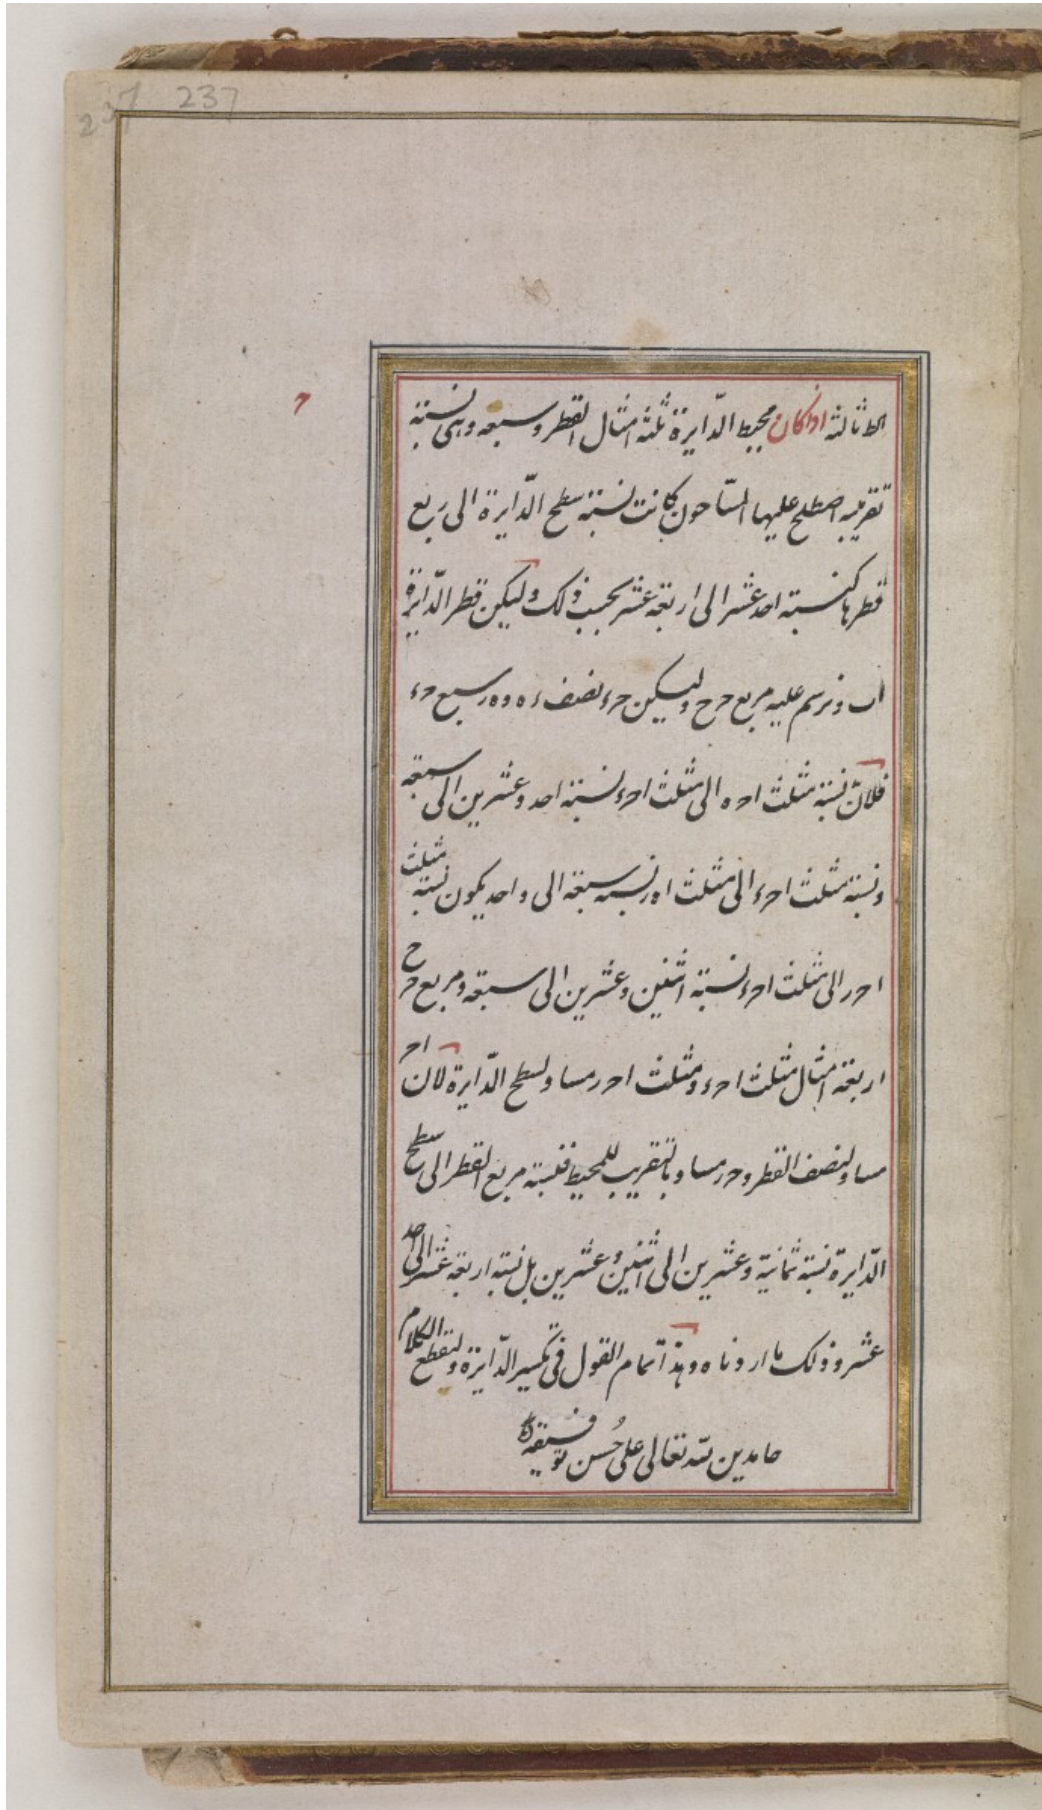 237 237
الط ثالثه اذا كان محيط الدّايرة ثلثه امثال القطر وسبعه وهى نسبته
تقريبيه اصطلح عليها المسّاحون كانت نسبته سطح الدّايرة الى ربع
قطرها كنسبته احد عشر الى اربعة عشر بحسب ذلك وليكن قطر الدّايرة
اب ونرسم عليه مربع حرح وليكن حرء نصف ءه وه ر سبع حرء
فلان نسبته مثلث احره الى مثلث احرء نسبته احد وعشرين الى سبعة
ونسبته مثلث احرء الى مثلث اه ر نسبته سبعة الى واحد يكون نسبته مثلث
احر ر الى مثلث احرء نسبته اثنين وعشرين الى سبعة ومربع حرح
اربعة امثال مثلث احرء ومثلث احر ر مساو لسطح الدّايرة لان احر
مساو لنصف القطر وحر ر مساو بالتقريب للمحيط فنسبته مربع القطر الى سطح
الدّايرة نسبته ثمانية وعشرين الى اثنين وعشرين بل نسبته اربعة عشر الى احد
عشر وذلك ما اردناه وهذا تمام القول فى تكسير الدّايرة ولنقطع الكلام
حامدين لله تعالى على حُسن توفيقه